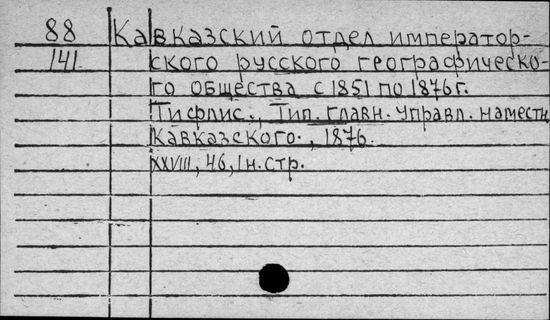 88 Кавказский отдел император-
141 ского русского географическо-
го общества с 1851 по 1876 г.
Тифлис., Тип. главн. управл. наместн.
Кавказского., 1876.
XXVIII, 46, 1 н. стр.